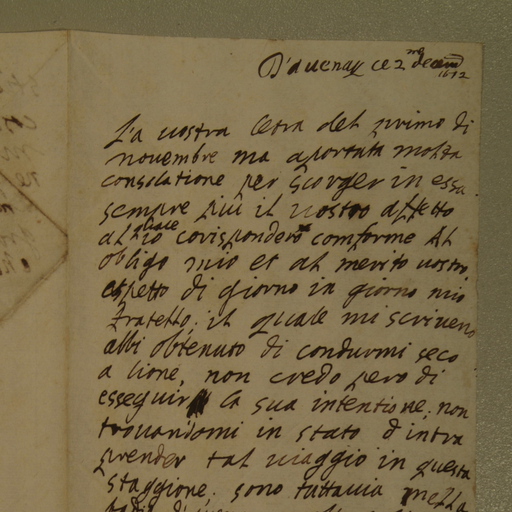 D'auenay ce 2 me decem
1612
La vostra letra del primo di
novembre ma aportata molta
consolatione per scorger in essa
sempre più il vostro affetto
al quale io corispondero comforme al
obligo mio et al merito vostro
aspetto di giorno in giorno mio
fratello. il quale mi scriveno
abbi obtenuto di condurmi seco
a lione, non credo pero di
esseguir la sua intentione. non
trovandomi in stato d intra
prender tal viaggio in questa
staggione. sono tuttavia mezza